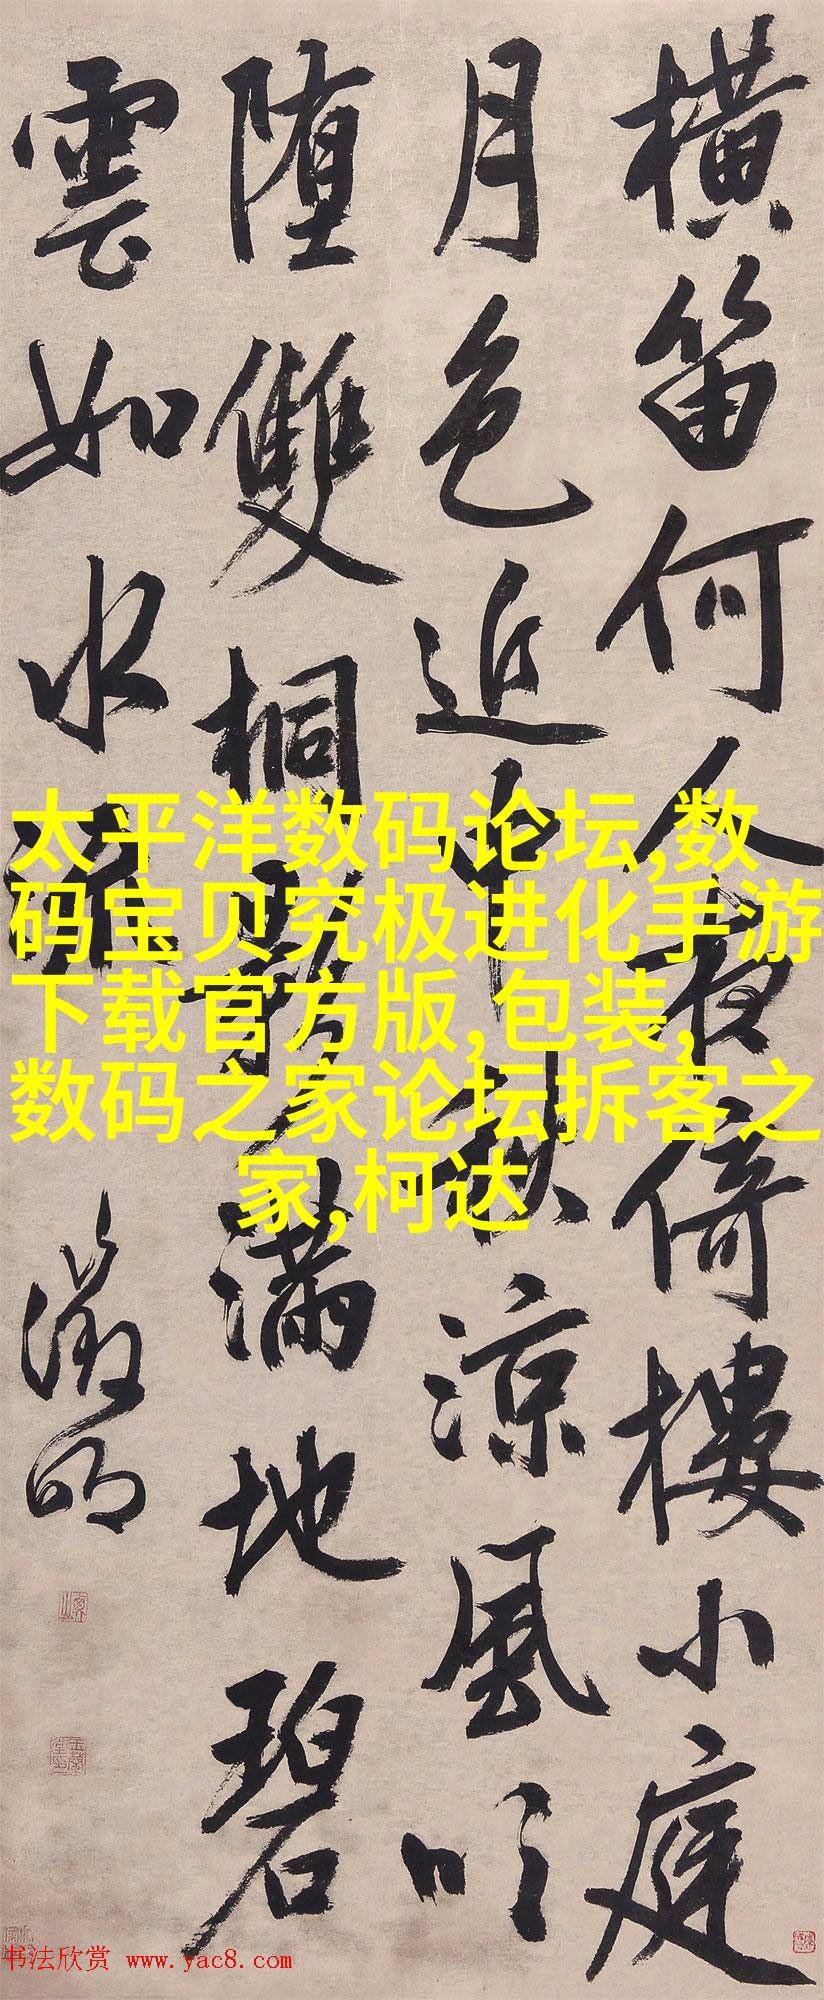 橫笛何人夜倚樓小庭
月色近中秋涼風吹
堕雙桐影滿地碧
雲如水流
徵明
太平洋数码论坛,数
码宝贝究极进化手游
下载官方版,包装,
数码之家论坛拆客之
家,柯达
书法欣赏 www.yac8.com